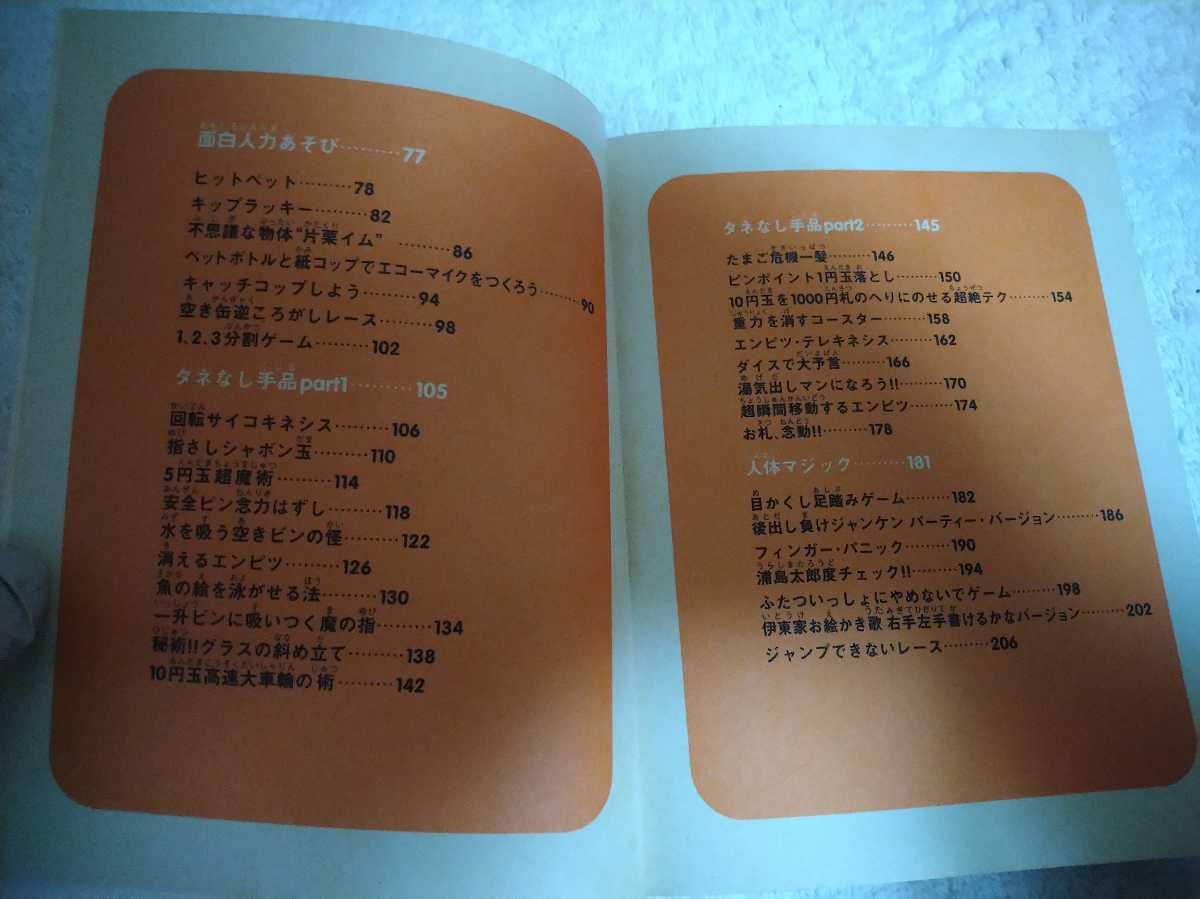 面白人力あそび………77
ヒットペット………78
キップラッキー………82
不思議な物体"片栗イム"………86
ペットボトルと紙コップでエコーマイクをつくろう………90
キャッチコップしよう………94
空き缶逆ころがしレース………98
1、2、3分割ゲーム………102
タネなし手品part1………105
回転サイコキネシス………106
指さしシャボン玉………110
5円玉超魔術………114
安全ピン念力はずし………118
水を吸う空きビンの怪………122
消えるエンピツ………126
魚の絵を泳がせる法………130
一升ビンに吸いつく魔の指………134
秘術!!グラスの斜め立て………138
10円玉高速大車輪の術………142
タネなし手品part2………145
たまご危機一髪………146
ピンポイント1円玉落とし………150
10円玉を1000円札のへりにのせる超絶テク………154
重力を消すコースター………158
エンピツ・テレキネシス………162
ダイスで大予言………166
湯気出しマンになろう!!………170
超瞬間移動するエンピツ………174
お札、念動!!………178
人体マジック………181
目かくし足踏みゲーム………182
後出し負けジャンケン パーティー・バージョン………186
フィンガー・パニック………190
浦島太郎度チェック!!………194
ふたついっしょにやめないでゲーム………198
伊東家お絵かき歌 右手左手書けるかなバージョン………202
ジャンプできないレース………206